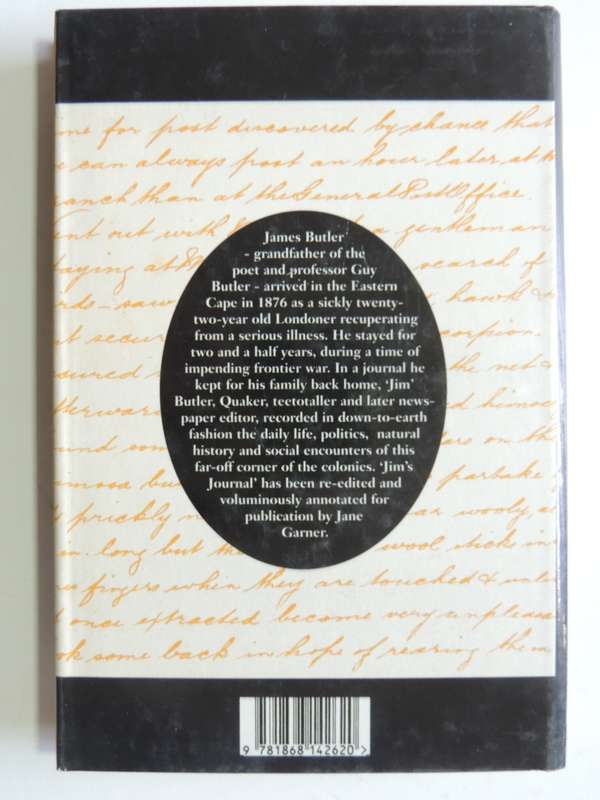 me for post discovered by chance that
e can always post an hour later at the
ranch than at the General Post Office.
ent out with a gentleman
aying at search of
rds - saw hawk &
t secu orpion.
sured the net &
terward d himse
und som rs on the
mosa bu partake
prickly n ar wooly, a
n. long but the wool sticks in
fingers when they are touched &
once extracted become very unpleas
ok some back in hope of rearing them
James Butler
- grandfather of the
poet and professor Guy
Butler - arrived in the Eastern
Cape in 1876 as a sickly twenty-
two-year old Londoner recuperating
from a serious illness. He stayed for
two and a half years, during a time of
impending frontier war. In a journal he
kept for his family back home, ‘Jim’
Butler, Quaker, teetotaller and later news-
paper editor, recorded in down-to-earth
fashion the daily life, politics, natural
history and social encounters of this
far-off corner of the colonies. ‘Jim’s
Journal’ has been re-edited and
voluminously annotated for
publication by Jane
Garner.
9 781868 142620 >